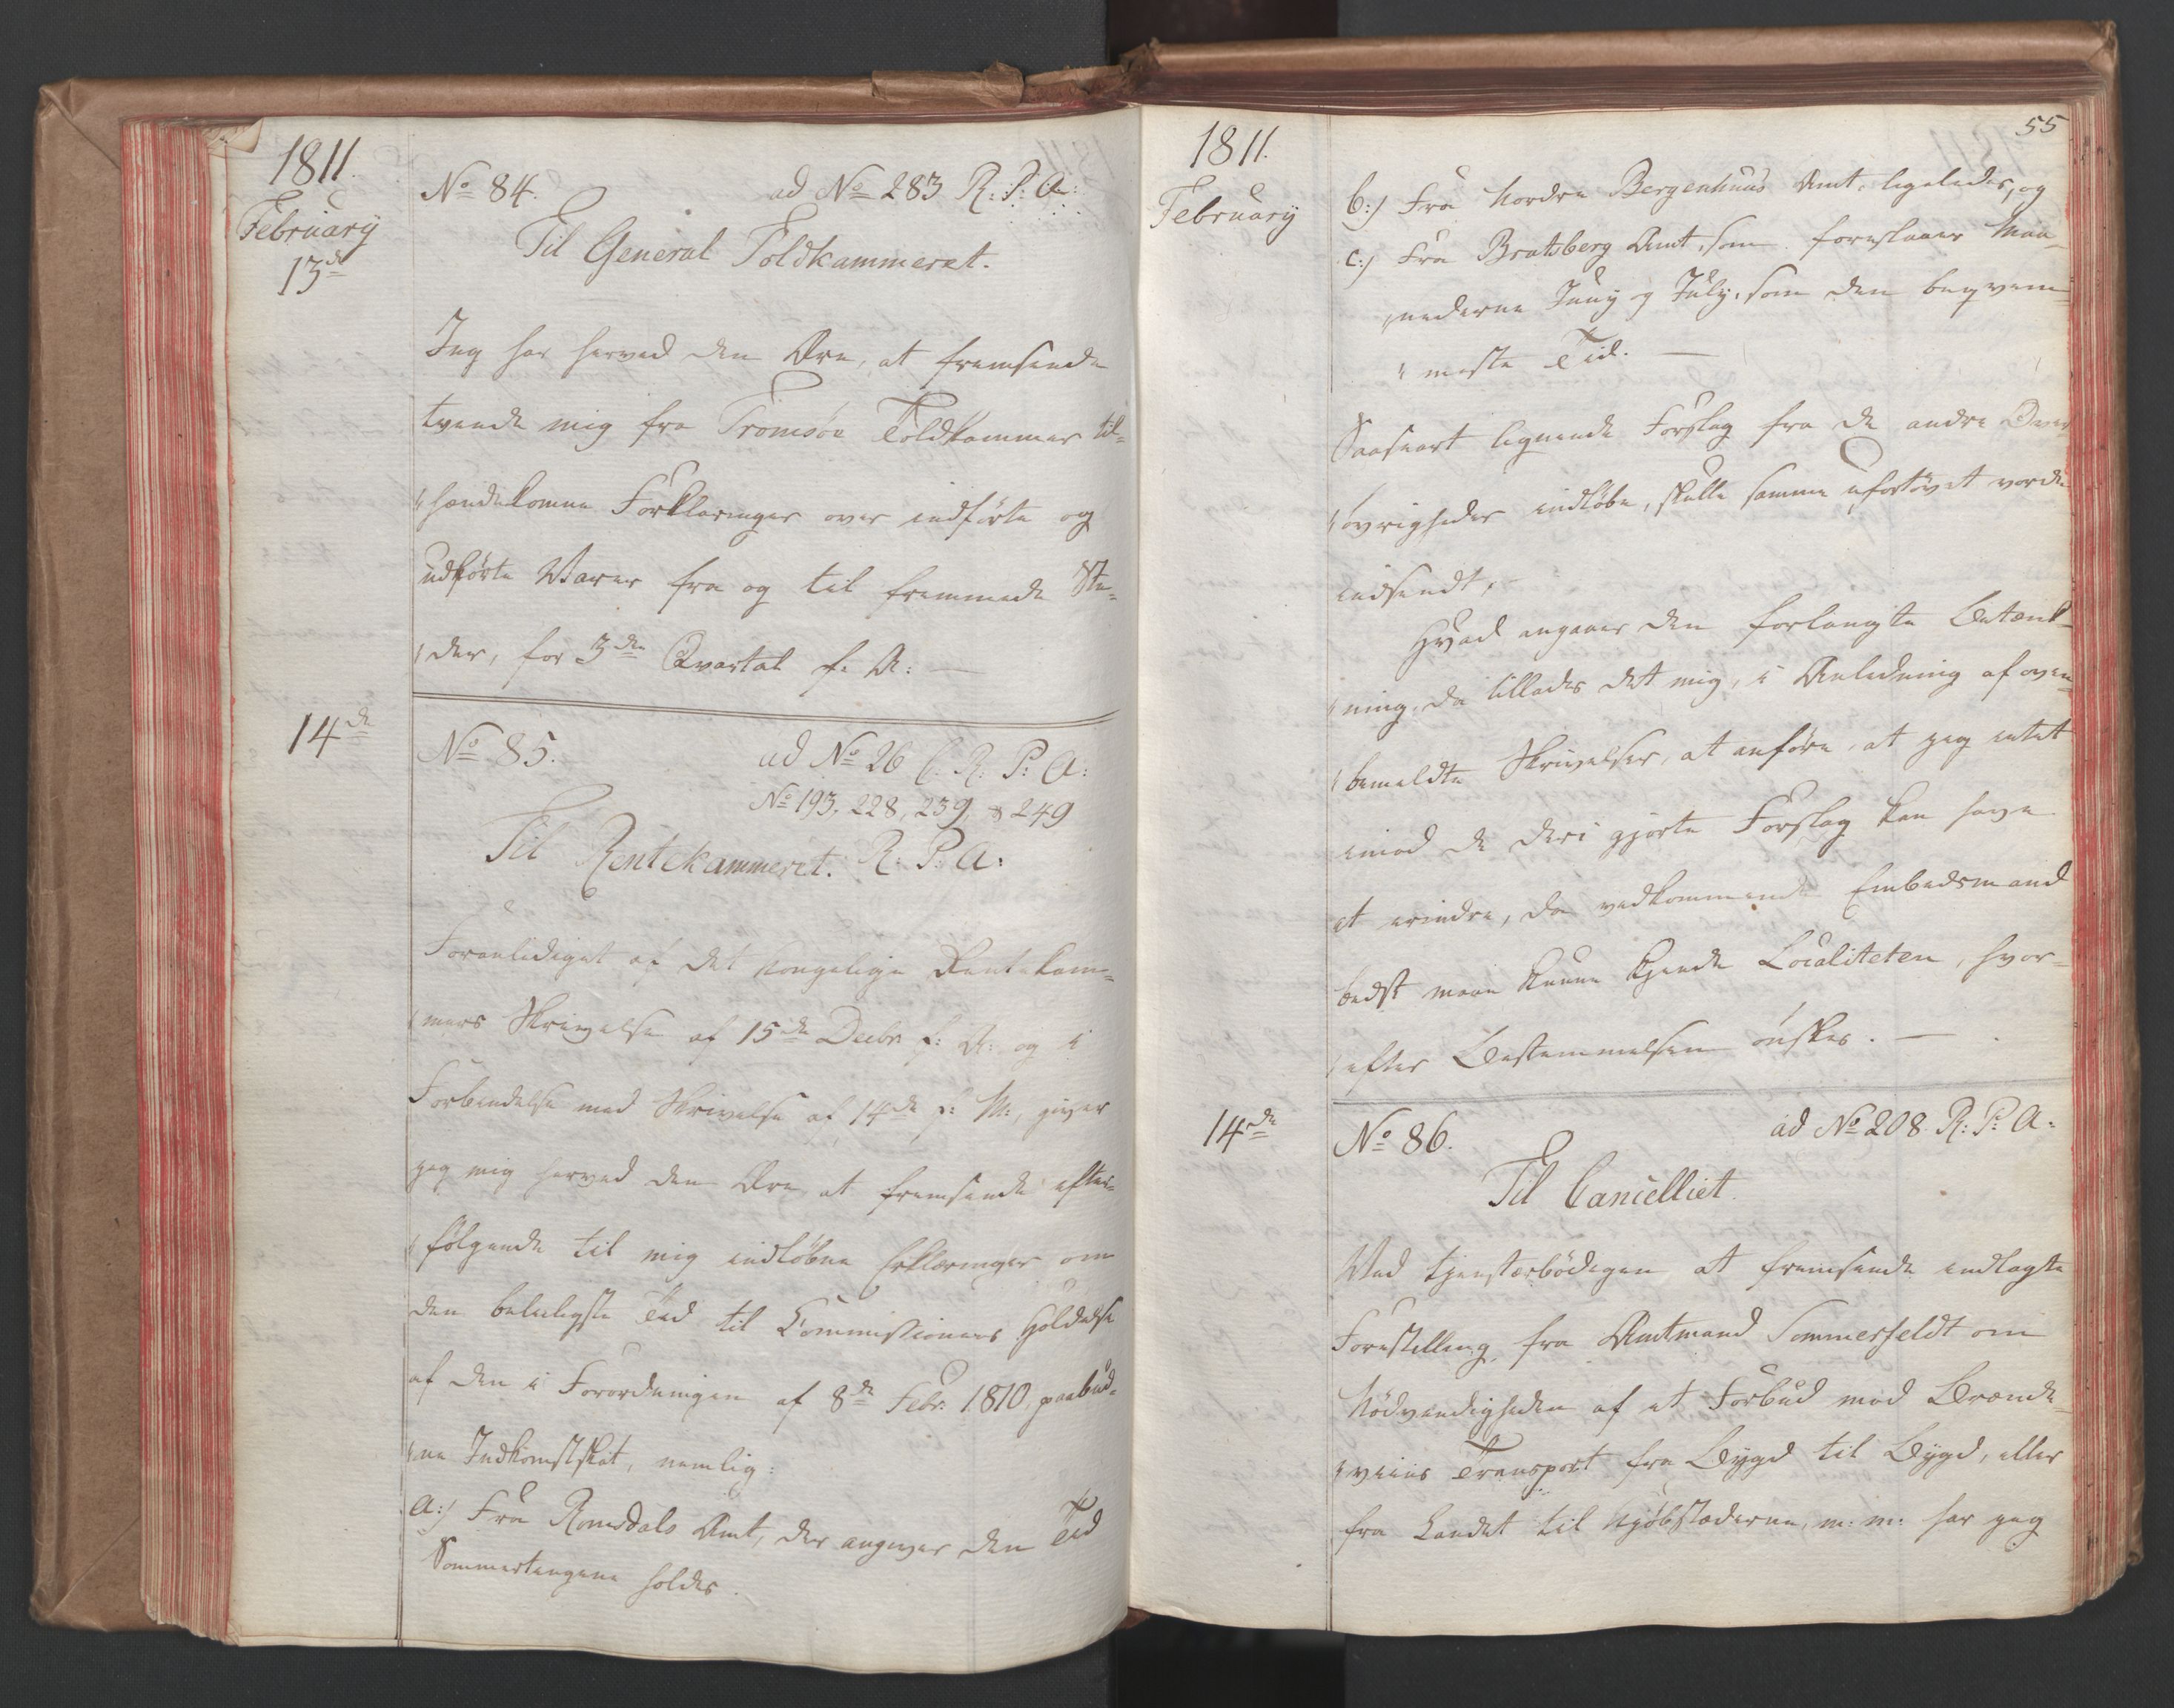 1811.
February
13de
No 84. ad No 283 R: P: A:
Til General Toldkammeret.
Jeg har herved den Ære, at fremsende
tvende mig fra Tromsöe Toldkammer til-
"hændekomne Forklaringer over indförte og
udförte Varer fra og til fremmede Ste-
"der, for 3die Qvartal f: A: —
14de
No 85. ad No 26 C. R: P: A:
No 193, 228, 239, & 249
Til Rentekammeret. R: P: A:
Foranlediget af det kongelige Rentekam-
"mers Skrivelse af 15de Decbr f: A: og i
Forbindelse med Skrivelse af 14de f: M:, giver
jeg mig herved den Ære at fremsende efter-
"fölgende til mig indlöbne Erklæringer om
den beleiligste Tid til Commissioners Holdelse
af den i Forordningen af 8de Febr. 1810 paabud-
"ne Indkomstskat, nemlig:
a:) Fra Romsdals Amt, der angiver den Tid
Sommertingene holdes.
55
1811.
February
b:) Fra Nordre Bergenhuus Amt, ligeledes, og
c:) Fra Bratsberg Amt, som foreslaaer Maa-
"nederne Juny og July, som den beqvem-
"meste Tid. —
Saasnart lignende Forslag fra de andre Över-
"övrigheder indlöbe, skulle samme ufortövet vorde
indsendt. —
Hvad angaaer den forlangte Betænk-
"ning, da tillades det mig, i Anledning af oven-
"bemeldte Skrivelser, at anföre, at jeg intet
imod de deri gjorte Forslag kan have
at erindre, da vedkommende Embedsmænd
bedst maae kunne kjende Localiteten, hvor-
"efter Bestemmelsen önskes. —
14de
No 86. ad No 208 R: P: A:
Til Cancelliet.
Ved tjenstærbödigen at fremsende indlagte
Forestilling fra Amtmand Sommerfeldt om
Nödvendigheden af et Forbud mod Brænde-
"viins Transport fra Bygd til Bygd, eller
fra Landet til Kjöbstæderne, m: m: har jeg